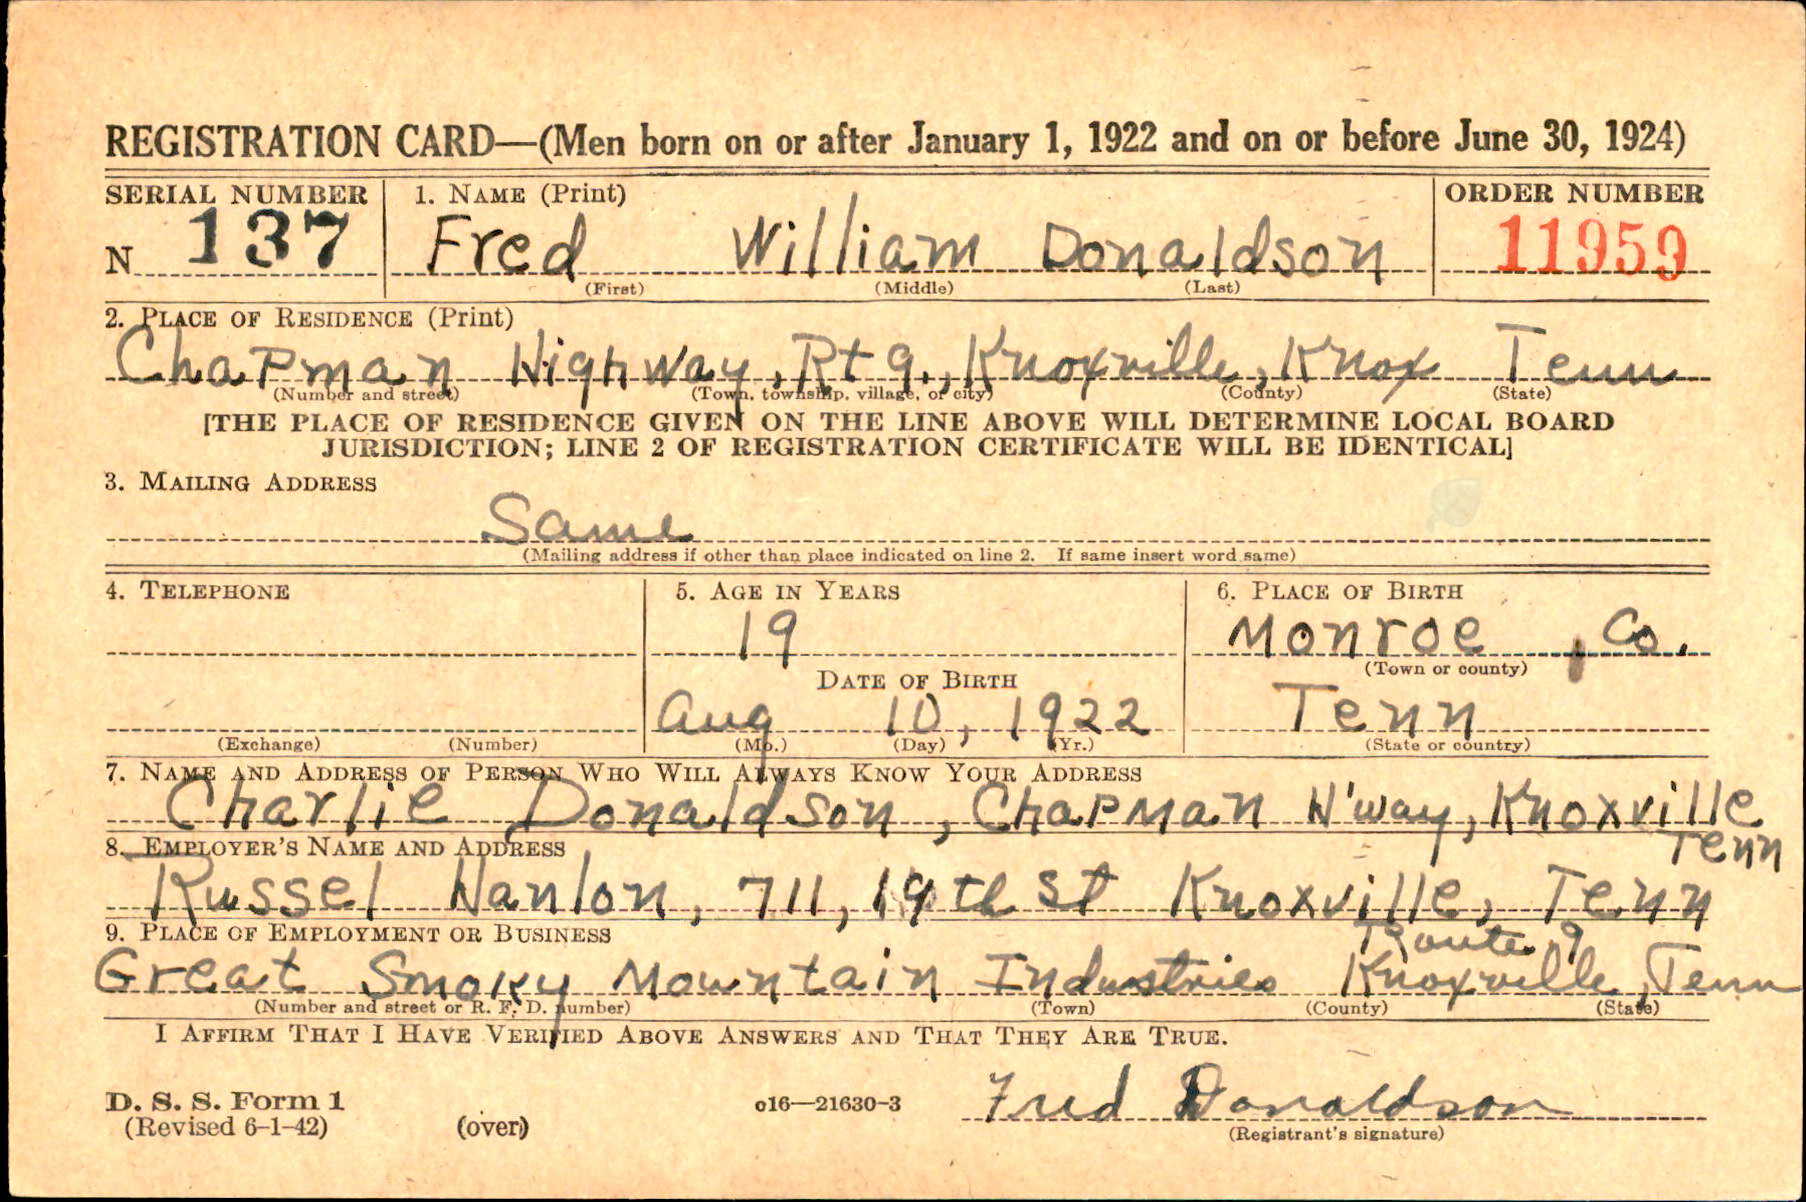 REGISTRATION CARD—(Men born on or after January 1, 1922 and on or before June 30, 1924)
SERIAL NUMBER 1. NAME (Print) ORDER NUMBER
N 137 Fred William Donaldson 11959
(First) (Middle) (Last)
2. PLACE OF RESIDENCE (Print)
Chapman Highway, Rt 9., Knoxville, Knox Tenn
(Number and street) (Town, township, village, or city) (County) (State)
[THE PLACE OF RESIDENCE GIVEN ON THE LINE ABOVE WILL DETERMINE LOCAL BOARD
JURISDICTION; LINE 2 OF REGISTRATION CERTIFICATE WILL BE IDENTICAL]
3. MAILING ADDRESS
Same
(Mailing address if other than place indicated on line 2. If same insert word same)
4. TELEPHONE 5. AGE IN YEARS 6. PLACE OF BIRTH
19 Monroe, Co.
(Town or county)
DATE OF BIRTH
Aug 10, 1922 Tenn
(Exchange) (Number) (Mo.) (Day) (Yr.) (State or country)
7. NAME AND ADDRESS OF PERSON WHO WILL ALWAYS KNOW YOUR ADDRESS
Charlie Donaldson, Chapman H'way, Knoxville
Tenn
8. EMPLOYER'S NAME AND ADDRESS
Russel Hanlon, 711, 19th St Knoxville, Tenn
9. PLACE OF EMPLOYMENT OR BUSINESS
Route 9
Great Smoky Mountain Industries Knoxville, Tenn
(Number and street or R. F. D. number) (Town) (County) (State)
I AFFIRM THAT I HAVE VERIFIED ABOVE ANSWERS AND THAT THEY ARE TRUE.
D. S. S. Form 1
(Revised 6-1-42) (over) c16—21630-3 Fred Donaldson
(Registrant's signature)